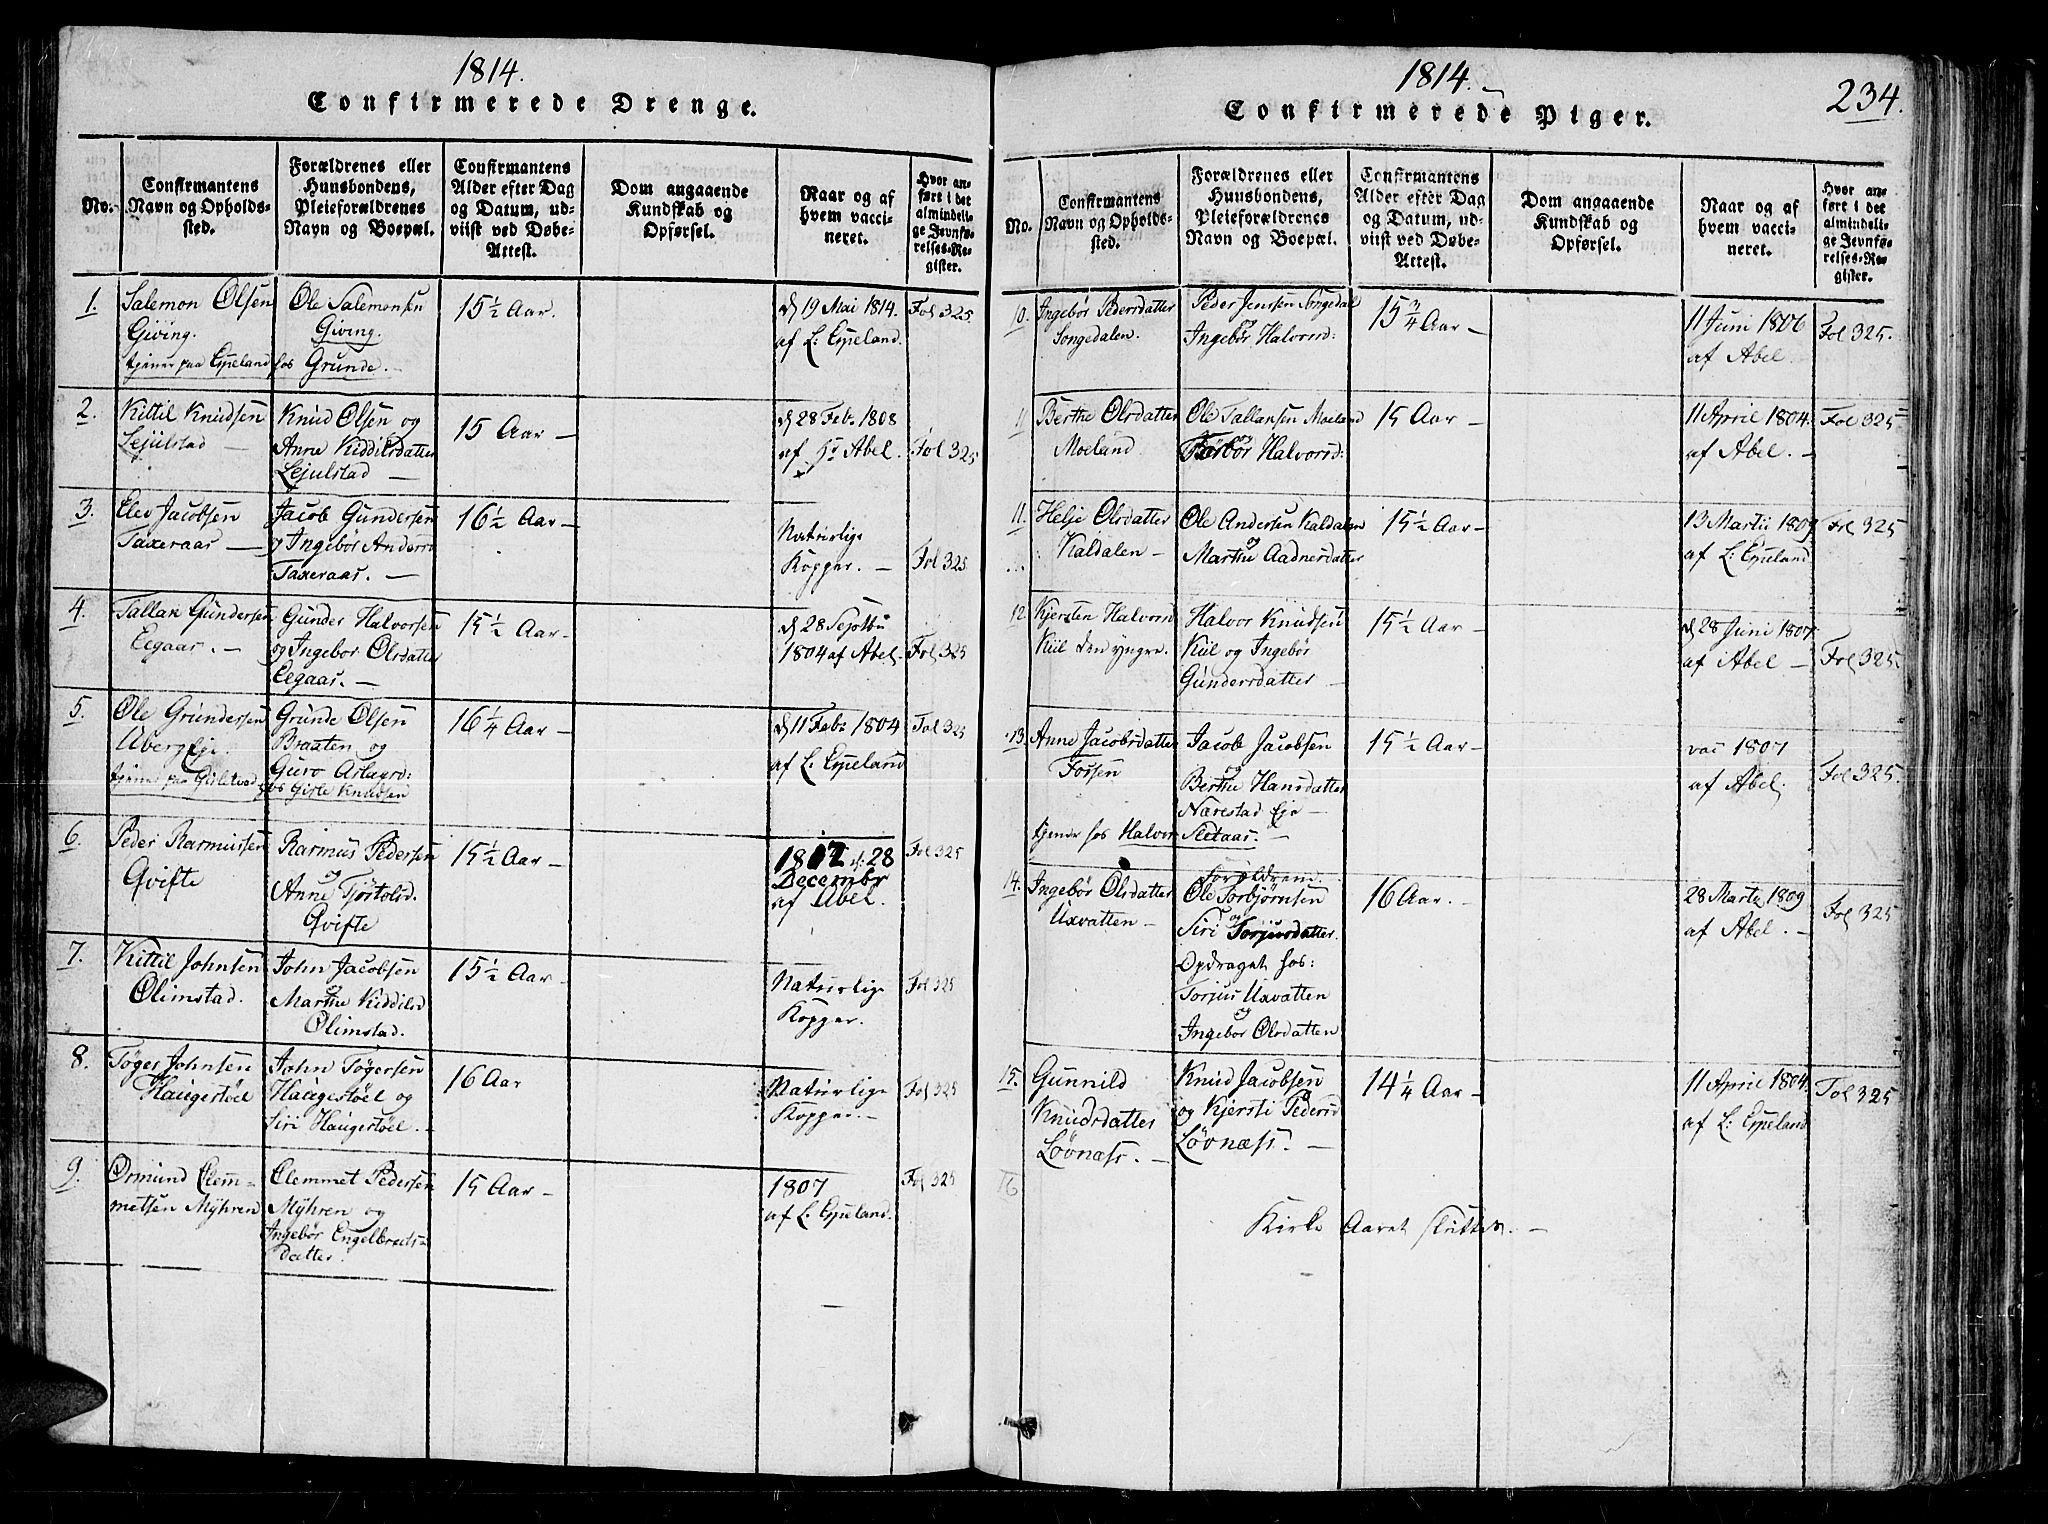 1814.
Confirmerede Drenge.
No.
Confirmantens
Navn og Opholds-
sted.
Forældrenes eller
Huusbondens,
Pleieforældrenes
Navn og Boepæl.
Confirmantens
Alder efter Dag
og Datum, ud-
viist ved Døbe-
Attest.
Dom angaaende
Kundskab og
Opførsel.
Naar og af
hvem vacci-
neret.
Hvor an-
ført i det
almindeli-
ge Jevnfø-
relses-Re-
gister.
1.
Salemon Olsen
Giving.
tjener paa Eppeland hos Grunde.
Ole Salemonsen
Giving.
15 1/2 Aar.
d 19 Mai 1814.
af L: Eppeland.
Fol 325
2.
Kittil Knudsen
Lejulstad
Knud Olsen og
Anne Kiddilsdatter
Lejulstad
15 Aar
d 28 Febr 1808
af Hr Abel.
Fol 325
3.
Elev Jacobsen
Taxeraas
Jacob Gundersen
og Ingebør Andersd
Taxeraas.
16 1/2 Aar
Naturlige
Kopper.
Fol 325
4.
Tallak Gundersen
Eegaas.
Gunder Halvorsen
og Ingebor Olsdatter
Eegaas.
15 1/2 Aar
d 28 Septbr
1804 af Abel.
Fol 325
5.
Ole Grundersen
Uberg Eje.
tjener paa Gislestad hos Gisle Knudsen
Grunde Olsen
Braaten og
Guro Aslagsd:
16 1/4 Aar
d 11 Febr 1804
af L. Eppeland
Fol 325
6.
Peder Rasmussen
Qvifte
Rasmus Pedersen
og
Anne Tjøstolsd.
Qvifte
15 1/2 Aar
1812 d: 28
Decembr
af Abel.
Fol 325
7.
Kittil Johnsen
Olimstad.
John Jacobsen
og
Marthe Kiddilsd
Olimstad.
15 1/2 Aar
Naturlige
Kopper.
Fol 325
8.
Tøger Johnsen
Haugestøel
John Tøgersen
Haugestøel og
Siri Haugestøel.
16 Aar
Naturlige
Kopper.
Fol 325
9.
Ormund Clem-
metsen Myhren
Clemmet Pedersen
Myhren og
Ingebør Engelbrets-
datter.
15 Aar
1807
af L. Eppeland.
Fol 325
1814.
234.
Confirmerede Piger.
No.
Confirmantens
Navn og Opholds-
sted.
Forældrenes eller
Huusbondens,
Pleieforældrenes
Navn og Boepæl.
Confirmantens
Alder efter Dag
og Datum, ud-
viist ved Døbe-
Attest.
Dom angaaende
Kundskab og
Opførsel.
Naar og af
hvem vacci-
neret.
Hvor an-
ført i det
almindeli-
ge Jevnfø-
relses-Re-
gister.
10.
Ingebør Pedersdatter
Songedalen.
Peder Jensen Songedal
og
Ingebør Halvorsd:
15 3/4 Aar
11 Juni 1806
af Abel.
Fol 325.
11
Berthe Olsdatter
Moeland
Ole Tallaksen Moeland
og
Torbør Halvorsd:
15 Aar
11 April 1804.
af Abel.
Fol 325
11.
Helje Olsdatter
Kaldalen
Ole Andersen Kaldalen
og
Marthe Aadnesdatter
15 1/2 Aar
13 Martii 1809
af L: Eppeland
Fol 325
12
Kjersten Halvorsd
Kiil den yngre.
Halvor Knudsen
Kiil og Ingebør
Gundersdatter
15 1/2 Aar
d 28 Juni 1807.
af Abel
Fol 325.
13.
Anne Jacobsdatter
Fossen
tjende hos Halvor Sletaas.
Jacob Jacobsen
og
Berthe Hansdatter
Nærestad Eje
15 1/2 Aar
vac 1807
af Abel.
Fol 325.
14.
Ingebør Olsdatter
Uxvatten
Forældrene.
Ole Torbjørnsen
og
Siri Torjusdatter.
Opdraget hos:
Torjus Uxvatten
og
Ingebør Olsdatten
16 Aar.
28 Marti 1809
af Abel.
Fol 325
15.
Gunnild
Knudsdatter
Løvnæss.
Knud Jacobsen
og Kjersti Pedersd
Løvnæss.
14 1/4 Aar
11 April 1804
af L: Eppeland
Fol 325
16
Kirke Aaret sluttet.